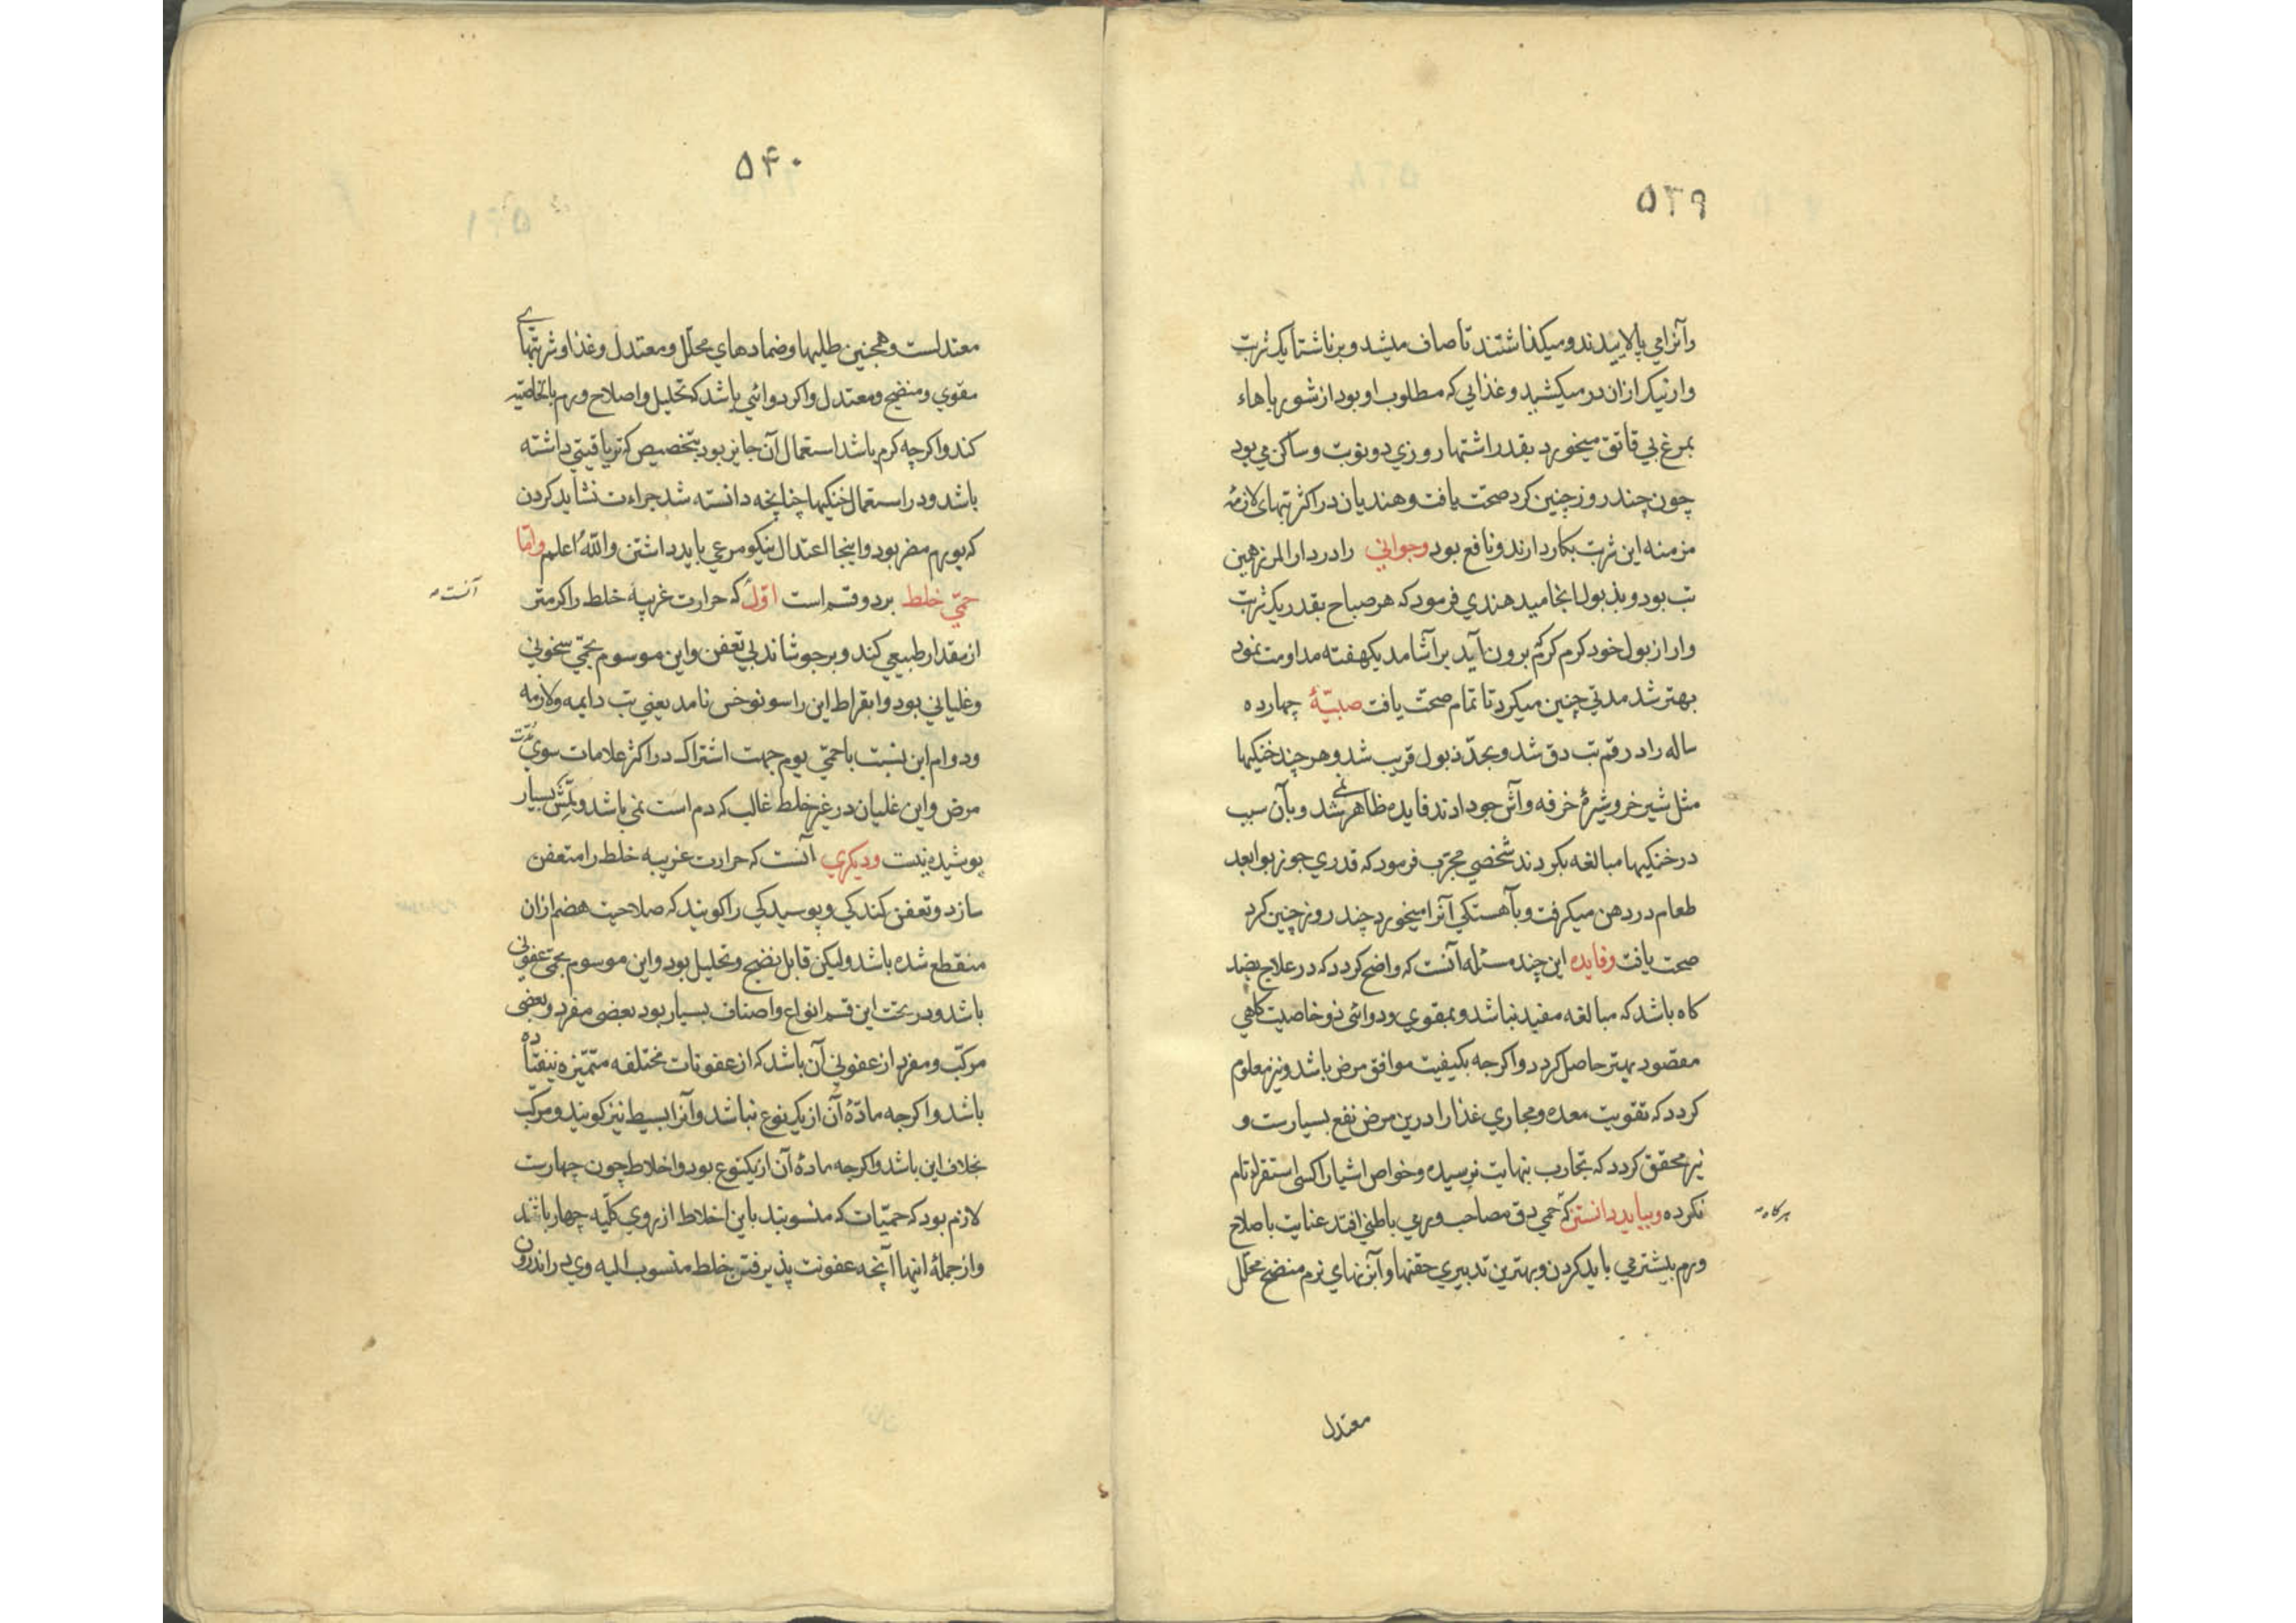 ۵۳۹
وآنرا می پالاییدند و میکذاشتند تا صاف میشد و بر ناشتا یک شربت
وار نیک ازان در میکشید و غذایی که مطلوب او بود از شورباهاء
بمرغ بی قاتق میخورد بقدر اشتها روزی دو نوبت و ساکن می بود
چون چند روز چنین کرد صحت یافت و هندیان در اکثر تبهای لازمهٔ
مزمنه این شربت بکار دارند و نافع بود وجوانی را در دار المرز همین
تب بود و بذبول انجامید هندی فرمود که هر صباح بقدر یک شربت
وار از بول خود کرم کرم برون آید بر آشامد یکهفته مداومت نمود
بهتر شد مدتی چنین میکرد تا تمام صحت یافت صبیّهٔ چهارده
ساله را در قم تب دق شد و بحدّ ذبول قریب شد و هر چند خنکیها
مثل شیر خر و شیرهٔ خرفه و آش جو دادند فایده ظاهر نمی شد و بآن سبب
در خنکیها مبالغه بکردند شخصی مجرّب فرمود که قدری جوز بوا بعد
طعام در دهن میکرفت و بآهستکی آنرا میخورد چند روز چنین کرد
صحت یافت وفایده این چند مسئله آنست که واضح کردد که در علاج بضد
کاه باشد که مبالغه مفید نباشد و بمقوی و دوائی ذو خاصیت کاهی
مقصود بهتر حاصل کردد و اکرچه بکیفیت موافق مرض باشد و نیز معلوم
کردد که تقویت معده و مجاری غذا را درین مرض نفع بسیارست و
نیز محقق کردد که تجارب بنهایت نرسیده و خواص اشیا را کسی استقراء تام
نکرده وبباید دانستن که حمی دق مصاحب ورمی باطنی افتد عنایت باصلاح
هرکاه
ورم بیشتر می باید کردن و بهترین تدبیری حقنها و آبزنهای نرم منضج محلّل
معتدل
۵۴۰
معتدلست و همچنین طلیها و ضمادهای محلّل و معتدل و غذا و شربتهای
مقوی و منضج و معتدل و اکر دوائی باشد که تحلیل و اصلاح ورم بالخاصّیه
کند و اکرچه کرم باشد استعمال آن جایز بود بتخصیص که تریاقیتی داشته
باشد و در استعمال خنکیها چنانچه دانسته شد جراءت نشاید کردن
که بورم مضر بود و اینجا اعتدال نیکو مرعی باید داشتن والله اعلم وامّا
حمّی خلط بر دو قسم است اوّل که حرارت غریبه خلط را کرمتر
آنست
از مقدار طبیعی کند و بر جوشاند بی تعفن و این موسوم بحمّی سخونی
و غلیانی بود و ابقراط این را سونوخس نامد یعنی تب دایمه و لازمه
و دوام این نسبت با حمّی یوم جهت اشتراک در اکثر علامات سوی مدّت
مرض و این غلیان در غیر خلط غالب که دم است نمی باشد و لمّش بسیار
پوشیده نیست ودیکری آنست که حرارت غریبه خلط را متعفن
سازد و تعفن کندکی و پوسیدکی را کویند که صلاحیت هضم ازان
منقطع شده باشد و لیکن قابل نضج و تحلیل بود و این موسوم بحمّی عفونی
باشد و در تحت این قسم انواع و اصناف بسیار بود بعضی مفرد و بعضی
مرکّب و مفرد از عفونی آن باشد که از عفونات مختلفه متمّیزه نیفتاده
باشد و اکرچه مادّهٔ آن از یک نوع نباشد و آنرا بسیط نیز کویند و مرکّب
بخلاف این باشد و اکرچه مادهٔ آن از یکنوع بود و اخلاط چون چهارست
لازم بود که حمیّات که منسوبند باین اخلاط از روی کلیّه چهار باشد
و از جملهٔ اینها آنچه عفونت پذیرفتن خلط منسوب الیه وی در اندرون